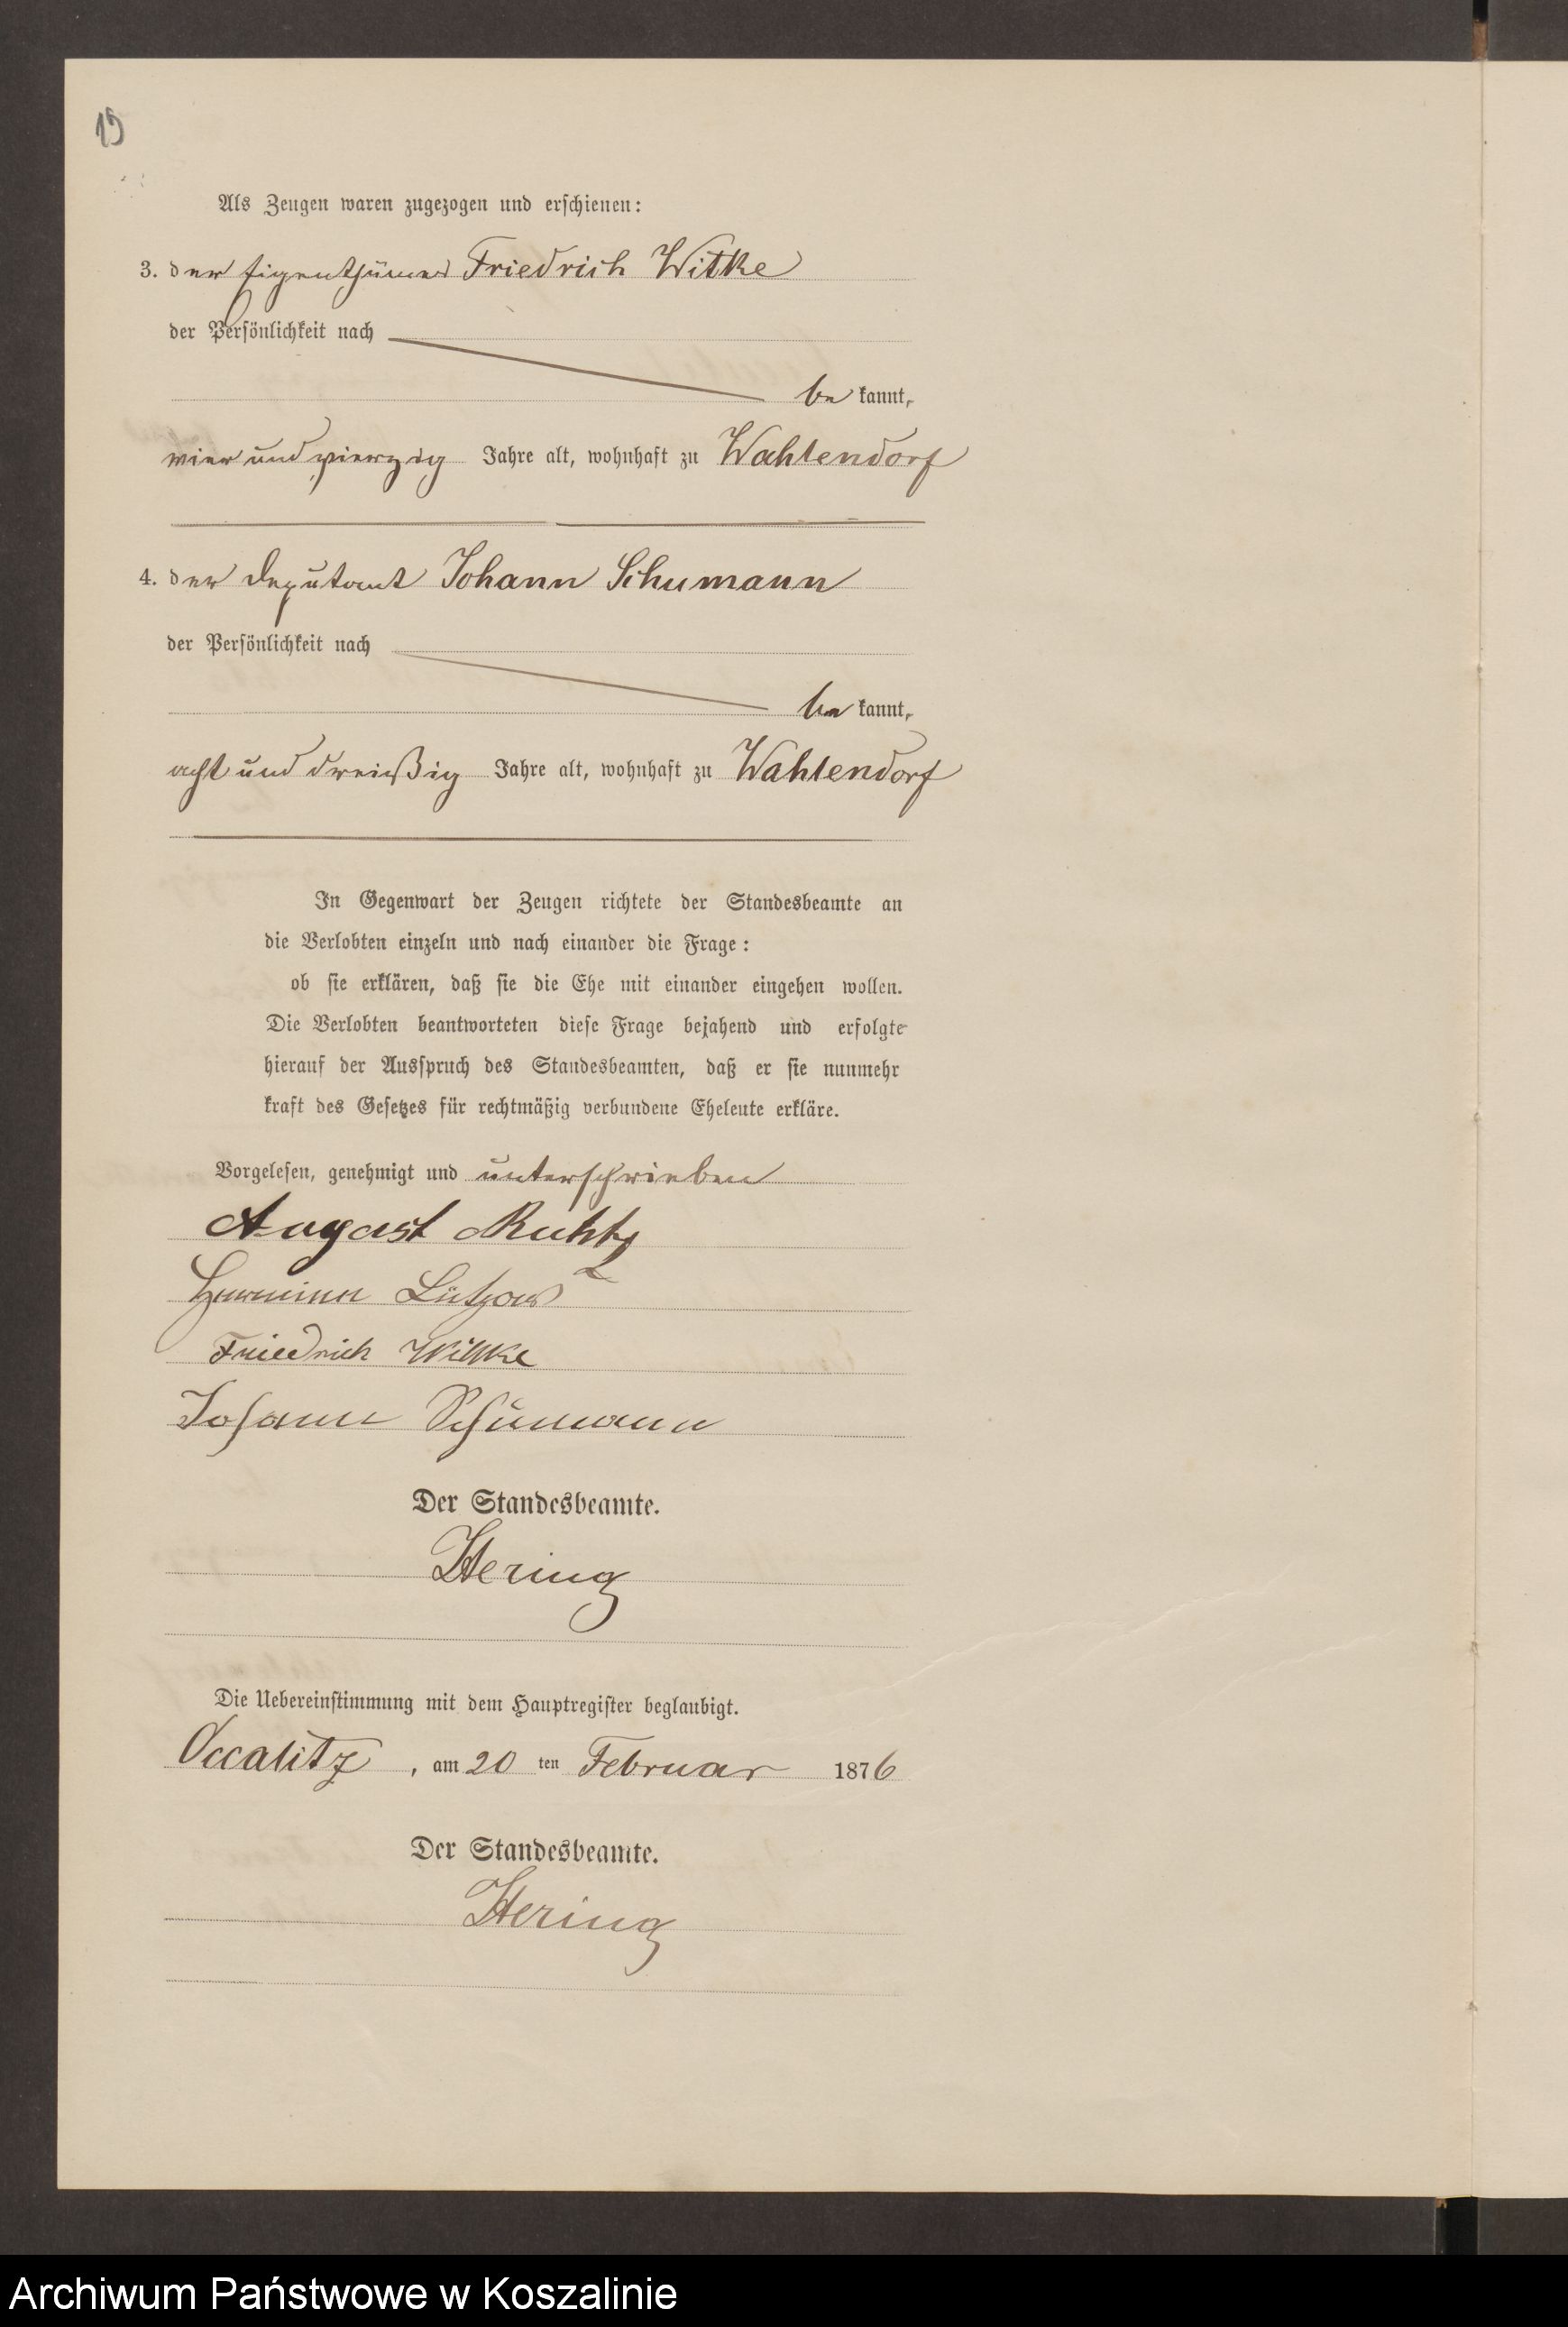 19
Als Zeugen waren zugezogen und erschienen:
3. der Eigenthümer Friedrich Witke
der Persönlichkeit nach
be kannt,
vier und vierzig Jahre alt, wohnhaft zu Wahlendorf
4. der Deputant Johann Schumann
der Persönlichkeit nach
be kannt,
acht und dreißig Jahre alt, wohnhaft zu Wahlendorf
In Gegenwart der Zeugen richtete der Standesbeamte an
die Verlobten einzeln und nach einander die Frage:
ob sie erklären, daß sie die Ehe mit einander eingehen wollen.
Die Verlobten beantworteten diese Frage bejahend und erfolgte
hierauf der Ausspruch des Standesbeamten, daß er sie nunmehr
kraft des Gesetzes für rechtmäßig verbundene Eheleute erkläre.
Vorgelesen, genehmigt und unterschrieben
August
Hermine Lützow
Friedrich Wittke
Johann Schumann
Der Standesbeamte.
Hering
Die Uebereinstimmung mit dem Hauptregister beglaubigt.
Occalitz, am 20 ten Februar 1876
Der Standesbeamte.
Hering
Archiwum Państwowe w Koszalinie